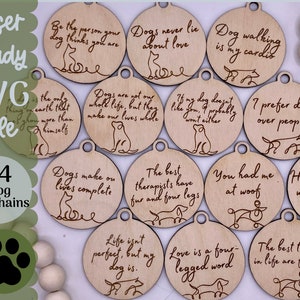 ser
ady
VG
le
4
og
hains
Be the person your
dog thinks you are
Dogs never lie
about love
Dog walking
is my cardio
is the only
on earth that
you more than
himself
Dogs are not our
whole life, but they
make our lives whole
If my dog doesn't
like you
probably
won't either
I prefer d
over people
Dogs make our
lives complete
The best
therapists have
fur and four legs
You had me
at woof
H
Life isn't
perfect, but my
dog is.
Love is a four-
legged word
The best
in life are